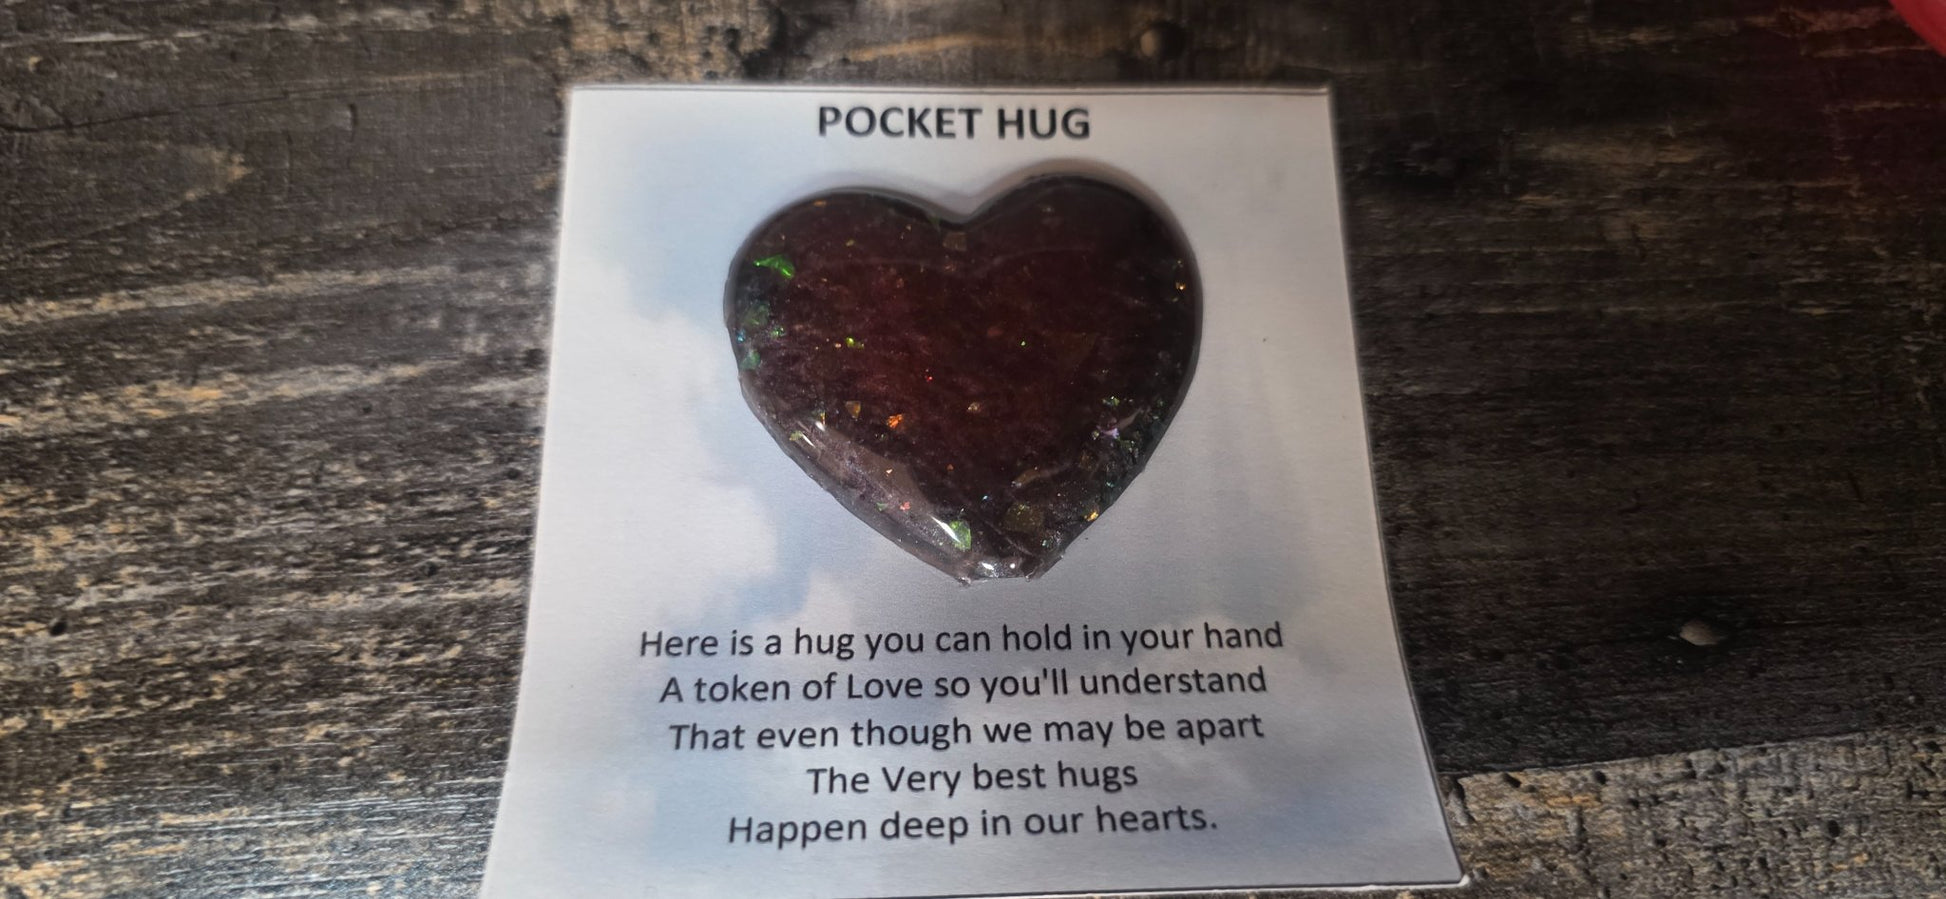 POCKET HUG
Here is a hug you can hold in your hand
A token of Love so you'll understand
That even though we may be apart
The Very best hugs
Happen deep in our hearts.